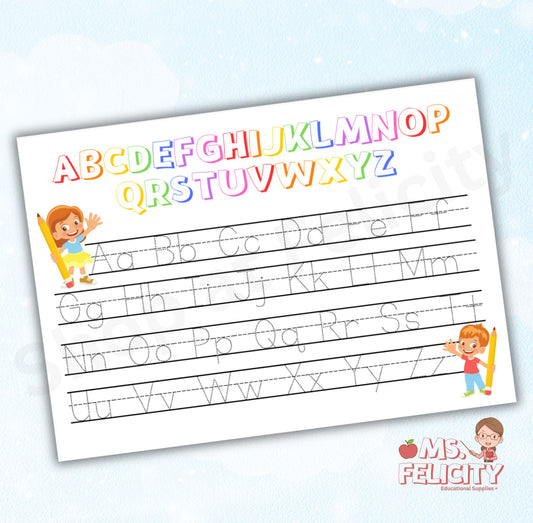 ABCDEFGHIJKLMNOP
QRSTUVWXYZ
Aa Bb Cc Dd Ee Ff
Gg Hh Ii Jj Kk Ll Mm
Nn Oo Pp Qq Rr Ss Tt
Uu Vv Ww Xx Yy Zz
MS.
FELICITY
Educational Supplies